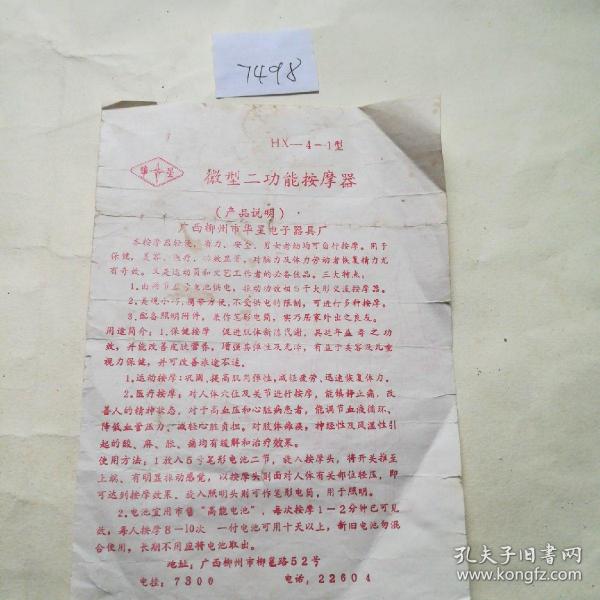 7498
HX—4-1型
华星
微型二功能按摩器
(产品说明)
广西柳州市华星电子器具厂
本按摩器轻便、省力、安全、男女老幼均可自行按摩。用于
保健、美容、医疗、功效显著,对脑力及体力劳动者恢复精力尤
有奇效。又是运动员和文艺工作者的必备佳品。三大特点:
1.由两节五号电池供电,振动功效相当于大形交流按摩器。
2.美观小巧,携带方便,不受供电的限制,可进行多种按摩。
3.配备照明附件,兼作笔形电筒,实乃居家外出之良友。
用途简介:1.保健按摩 促进肌体新陈代谢,具延年益寿之功
效,并能改善皮肤营养,增强其弹性及光泽,有益于美容及儿童
视力保健,并可改善旅途不适。
1.运动按摩:巩固、提高肌肉弹性,减轻疲劳、迅速恢复体力。
2.医疗按摩:对人体穴位及关节进行按摩,能镇静止痛,改
善人的精神状态。对于高血压和心脏病患者,能调节血液循环、
降低血管压力、减轻心脏负担。对肢体瘫痪,神经性及风湿性引
起的酸、麻、胀、痛均有缓解和治疗效果。
使用方法:1放入5号笔形电池二节,旋入按摩头,将开关推至
上端、有明显振动感觉,以按摩头侧面对人体有关部位轻压,即
可达到按摩效果。旋入照明头则可作笔形电筒,用于照明。
2.电池宜用市售“高能电池”,每次按摩1-2分钟已可见
效,每人按摩8-10次 一付电池可用十天以上,新旧电池勿混
合使用,长期不用应将电池取出。
地址:广西柳州市柳邕路52号
电挂:7300 电话:22604
孔夫子旧书网
www.kongfz.com